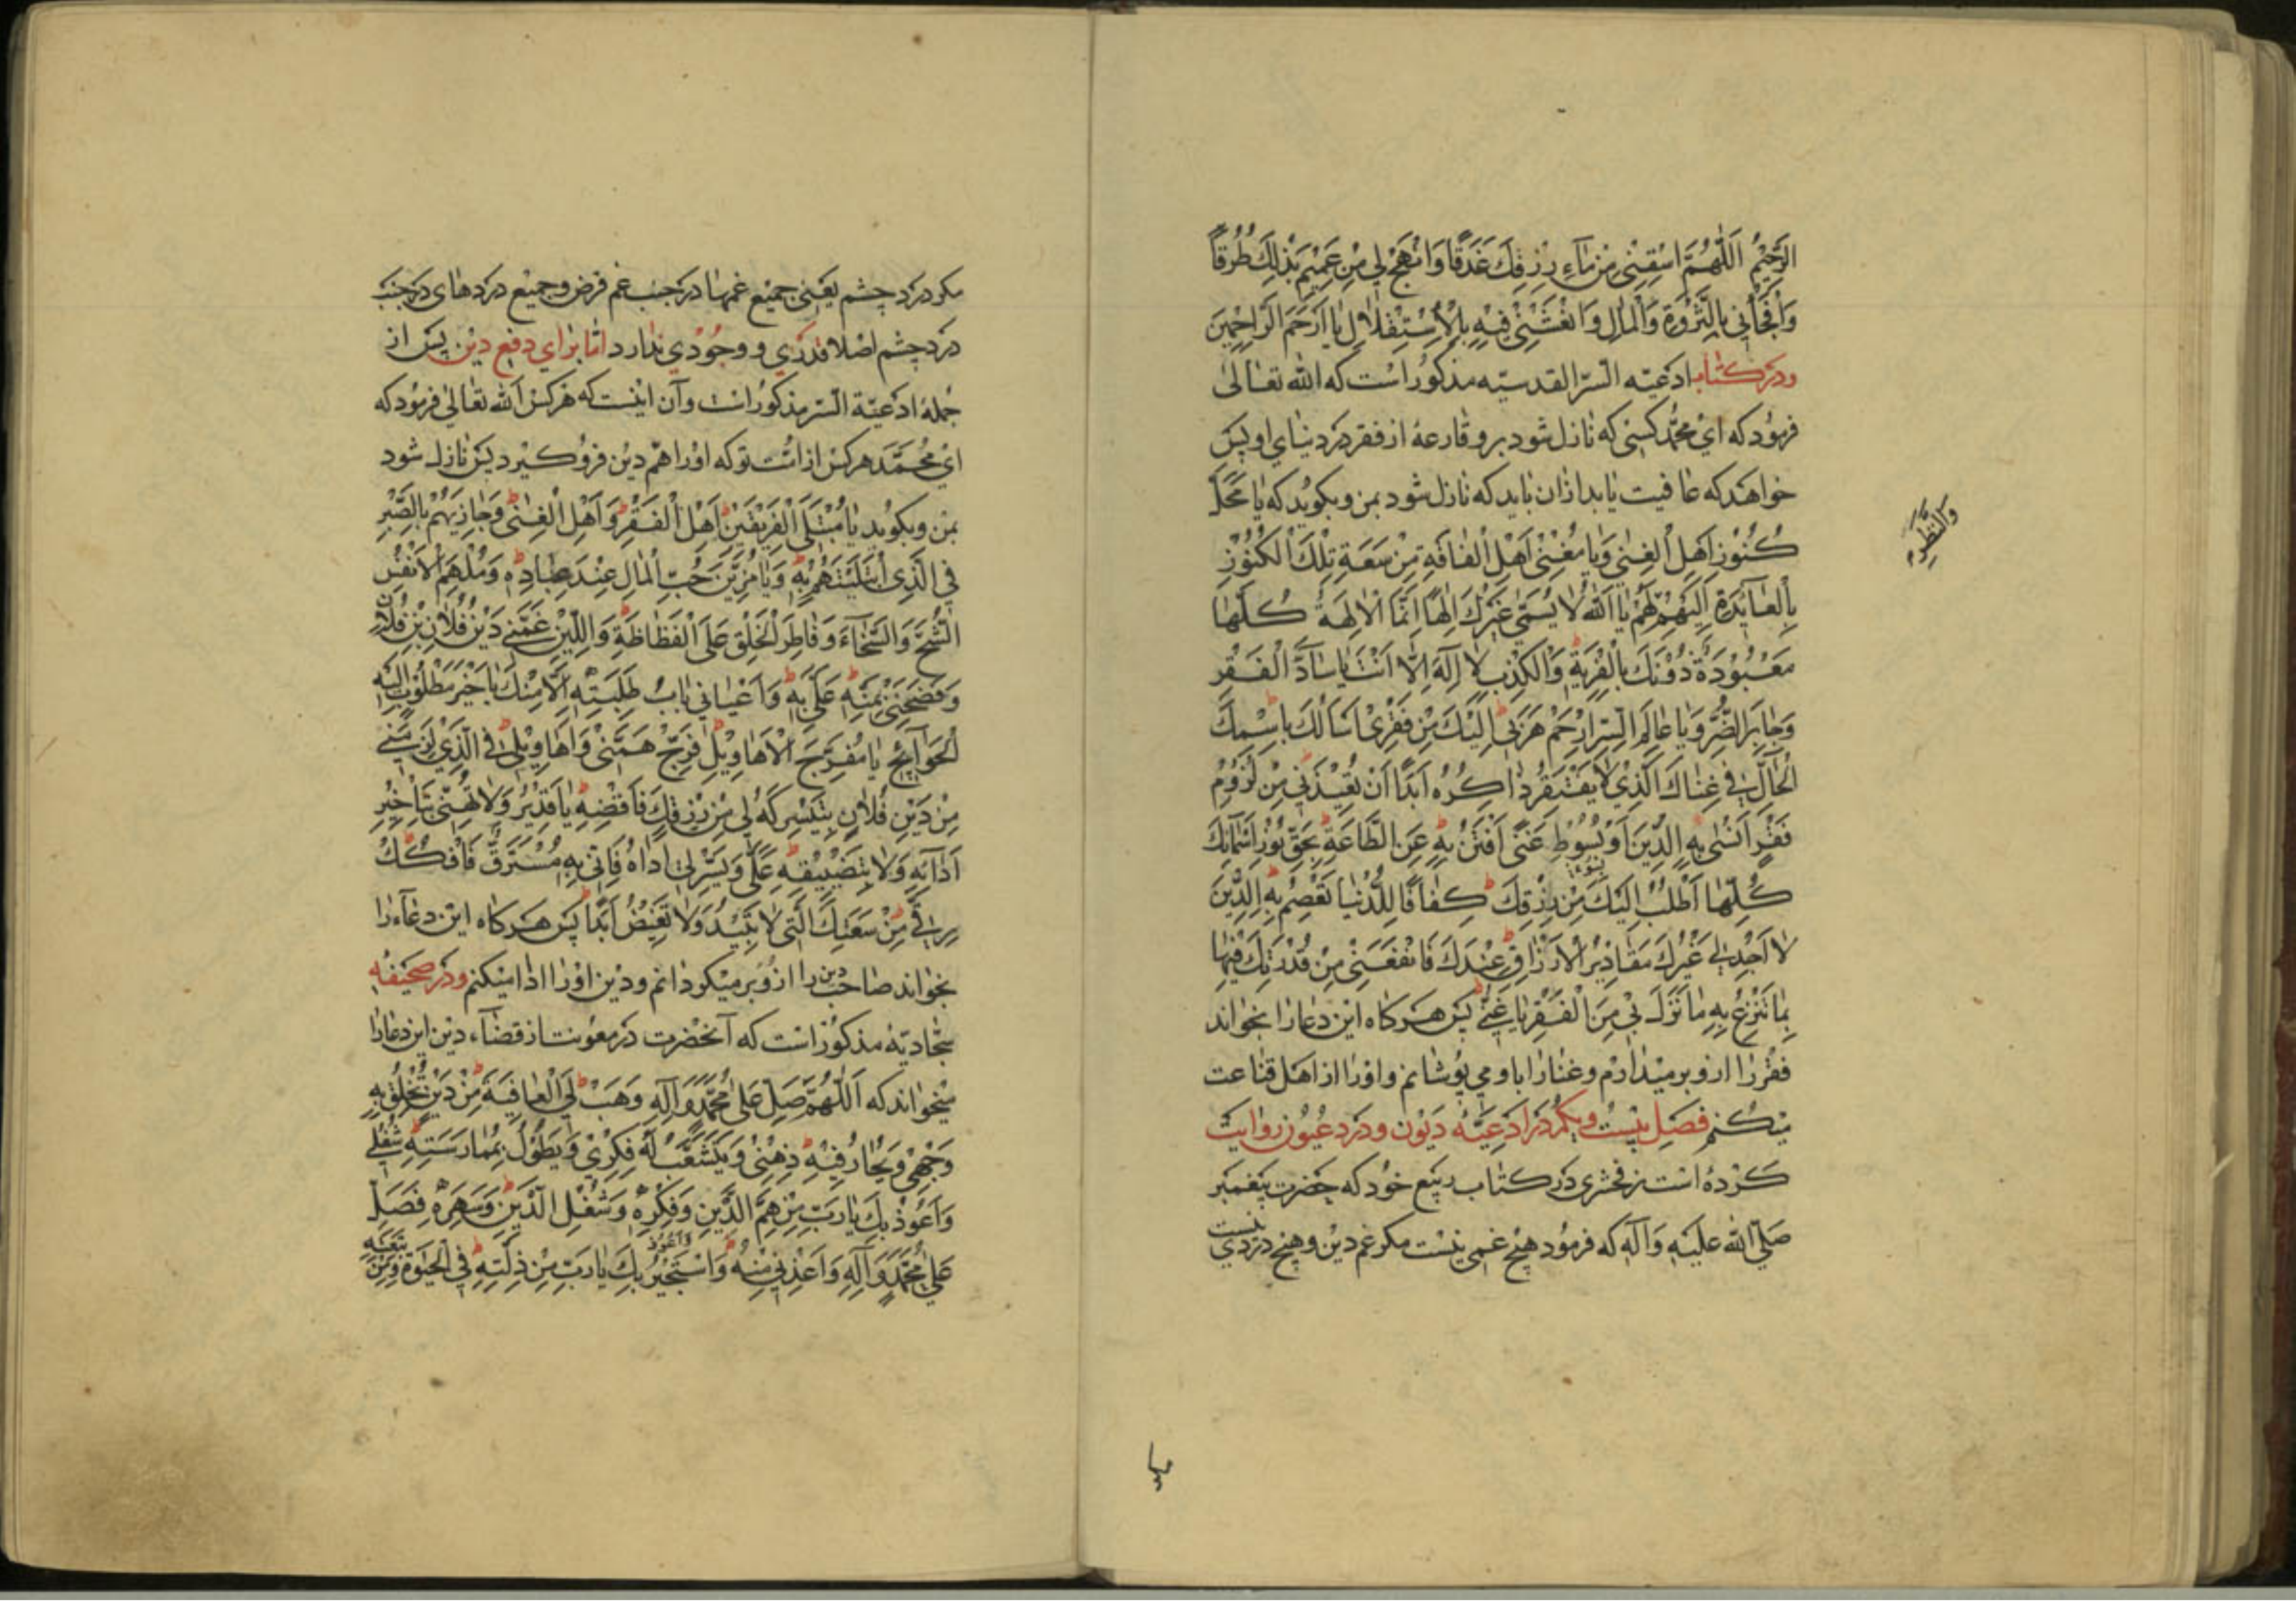 الرَّحِيْمُ اَللّٰهُمَّ اسْقِنِيْ مِنْ مَاءِ رِزْقِكَ غَدَقًا وَانْهَجْ لِي مِنْ عَمِيْمِ بَذْلِكَ طُرُقًا
وَافْجَأْنِي بِالثَّرْوَةِ وَالْمَالِ وَانْعَشْنِيْ فِيْهِ بِالْاِسْتِقْلَالِ يَا اَرْحَمَ الرَّاحِمِيْنَ
ودر كتاب ادعيّه السّر القدسيّه مذكور است كه الله تعالى
فرمود كه اى محمّد كسى كه نازل شود برو قارعۀ از فقر در دنياى او پس
خواهد كه عافيت يابد ازان بايد كه نازل شود بمن وبكويد كه يَا مَحَلَّ
كُنُوْزِ اَهْلِ الْغِنٰى وَيَا مُغْنِيَ اَهْلِ الْفَاقَةِ مِنْ سَعَةِ تِلْكَ الْكُنُوْزِ
بِالْعَائِدَةِ اِلَيْهِمْ لَهُمْ يَا اَللّٰهُ لَا يُسَمّٰى غَيْرُكَ اِلٰهًا اِنَّمَا الْاٰلِهَةُ كُلُّهَا
والنظر لهم
مَعْبُوْدَةٌ دُوْنَكَ بِالْفِرْيَةِ وَالْكَذِبِ لَا اِلٰهَ اِلَّا اَنْتَ يَا سَادَّ الْفَقْرِ
وَجَابِرَ الضُّرِّ وَيَا عَالِمَ السِّرِّ ارْحَمْ هَرَبِي اِلَيْكَ مِنْ فَقْرِيْ اَسْاَلُكَ بِاسْمِكَ
الْحَالِّ فِي غِنَاكَ الَّذِيْ لَا يَفْتَقِرُ ذَاكِرُهُ اَبَدًا اَنْ تُعِيْذَنِي مِنْ لُزُوْمِ
فَقْرٍ اَنْسٰى بِهِ الدِّيْنَ اَوْ بُسُوْطِ غِنًى اَفْتَتِنُ بِهِ عَنِ الطَّاعَةِ بِحَقِّ نُوْرِ اَسْمَائِكَ
كُلِّهَا اَطْلُبُ اِلَيْكَ مِنْ رِزْقِكَ كَفَافًا لِلدُّنْيَا تَعْصِمُ بِهِ الدِّيْنَ
لَا اَجِدُ لِي غَيْرَكَ مَقَادِيْرُ الْاَرْزَاقِ عِنْدَكَ فَانْفَعْنِيْ مِنْ قُدْرَتِكَ فِيْهَا
بِمَا تَنْزِعُ بِهِ مَا نَزَلَ بِيْ مِنَ الْفَقْرِ يَا غَنِيُّ پس هركاه اين دعا را بخواند
فقر را ازو بر ميدارم وغنا را باو مى پوشانم واورا از اهل قناعت
ميكنم فصل بيست ويكم در ادعيّه ديون ودرد عيون روايت
كرده است زمخشرى در كتاب ربيع خود كه حضرت پيغمبر
صلّى الله عليه وآله كه فرمود هيچ غمى نيست مكر غم دين وهيچ دردى نيست
مكر درد چشم يعنى جميع غمها در جنب غم قرض وجميع دردهاى در جنب
درد چشم اصلا قدرى و وجودى ندارد امّا براى دفع دين پس از
جملۀ ادعيّة السّر مذكور است وآن اينست كه هركس الله تعالى فرمود كه
اى محمّد هركس از امّت تو كه اورا همّ دين فرو كيرد پس نازل شود
بمن وبكويد يَا مُبْتَلِيَ الْفَرِيْقَيْنِ اَهْلَ الْفَقْرِ وَاَهْلَ الْغِنٰى وَجَازِيَهُمْ بِالصَّبْرِ
فِي الَّذِي ابْتَلَيْتَهُمْ بِهِ وَيَا مُزَيِّنَ حُبِّ الْمَالِ عِنْدَ عِبَادِهِ وَمُلْهِمَ الْاَنْفُسِ
الشُّحَّ وَالسَّخَاءَ وَفَاطِرَ الْخَلْقِ عَلَى الْفَظَاظَةِ وَاللِّيْنِ غَمَّنِي دَيْنُ فُلَانِ بْنِ فُلَانٍ
وَفَضَحَنِيْ بِمَنِّهِ عَلَيَّ بِهِ وَاَعْيَانِي بَابُ طَلِبَتِهِ اِلَّا مِنْكَ يَا خَيْرَ مَطْلُوْبٍ اِلَيْهِ
الْحَوَائِجُ يَا مُفَرِّجَ الْاَهَاوِيْلِ فَرِّجْ هَمِّيْ وَاَهَاوِيْلِي فِي الَّذِيْ لَزِمَنِي
مِنْ دَيْنِ فُلَانٍ بِتَيْسِيْرِكَهُ لِي مِنْ رِزْقِكَ فَاقْضِهِ يَا قَدِيْرُ وَلَا تُهِنِّي بِتَاْخِيْرِ
اَدَائِهِ وَلَا بِتَضْيِيْقِهِ عَلَيَّ وَيَسِّرْ لِي اَدَاءَهُ فَاِنِّي بِهِ مُسْتَرَقٌّ فَافْكُكْ
رِقِّي مِنْ سَعَتِكَ الَّتِي لَا تَبِيْدُ وَلَا تَغِيْضُ اَبَدًا پس هركاه اين دعاء را
بخواند صاحب دين را ازو بر ميكردانم ودين اورا ادا ميكنم ودر صحيفه
سجّاديّه مذكور است كه آنحضرت در معونت از قضاء دين اين دعا را
ميخواند كه اَللّٰهُمَّ صَلِّ عَلٰى مُحَمَّدٍ وَاٰلِهِ وَهَبْ لِيَ الْعَافِيَةَ مِنْ دَيْنٍ تُخْلِقُ بِهِ
وَجْهِيْ وَيَحَارُ فِيْهِ ذِهْنِيْ وَيَتَشَعَّبُ لَهُ فِكْرِيْ وَيَطُوْلُ بِمُمَارَسَتِهِ شُغْلِي
وَاَعُوْذُ بِكَ يَا رَبِّ مِنْ هَمِّ الدَّيْنِ وَفِكْرِهِ وَشُغْلِ الدَّيْنِ وَسَهَرِهِ فَصَلِّ
عَلٰى مُحَمَّدٍ وَاٰلِهِ وَاَعِذْنِي مِنْهُ وَاَسْتَجِيْرُ بِكَ يَا رَبِّ مِنْ ذِلَّتِهِ فِي الْحَيٰوةِ وَمِنْ تَبِعَتِهِ